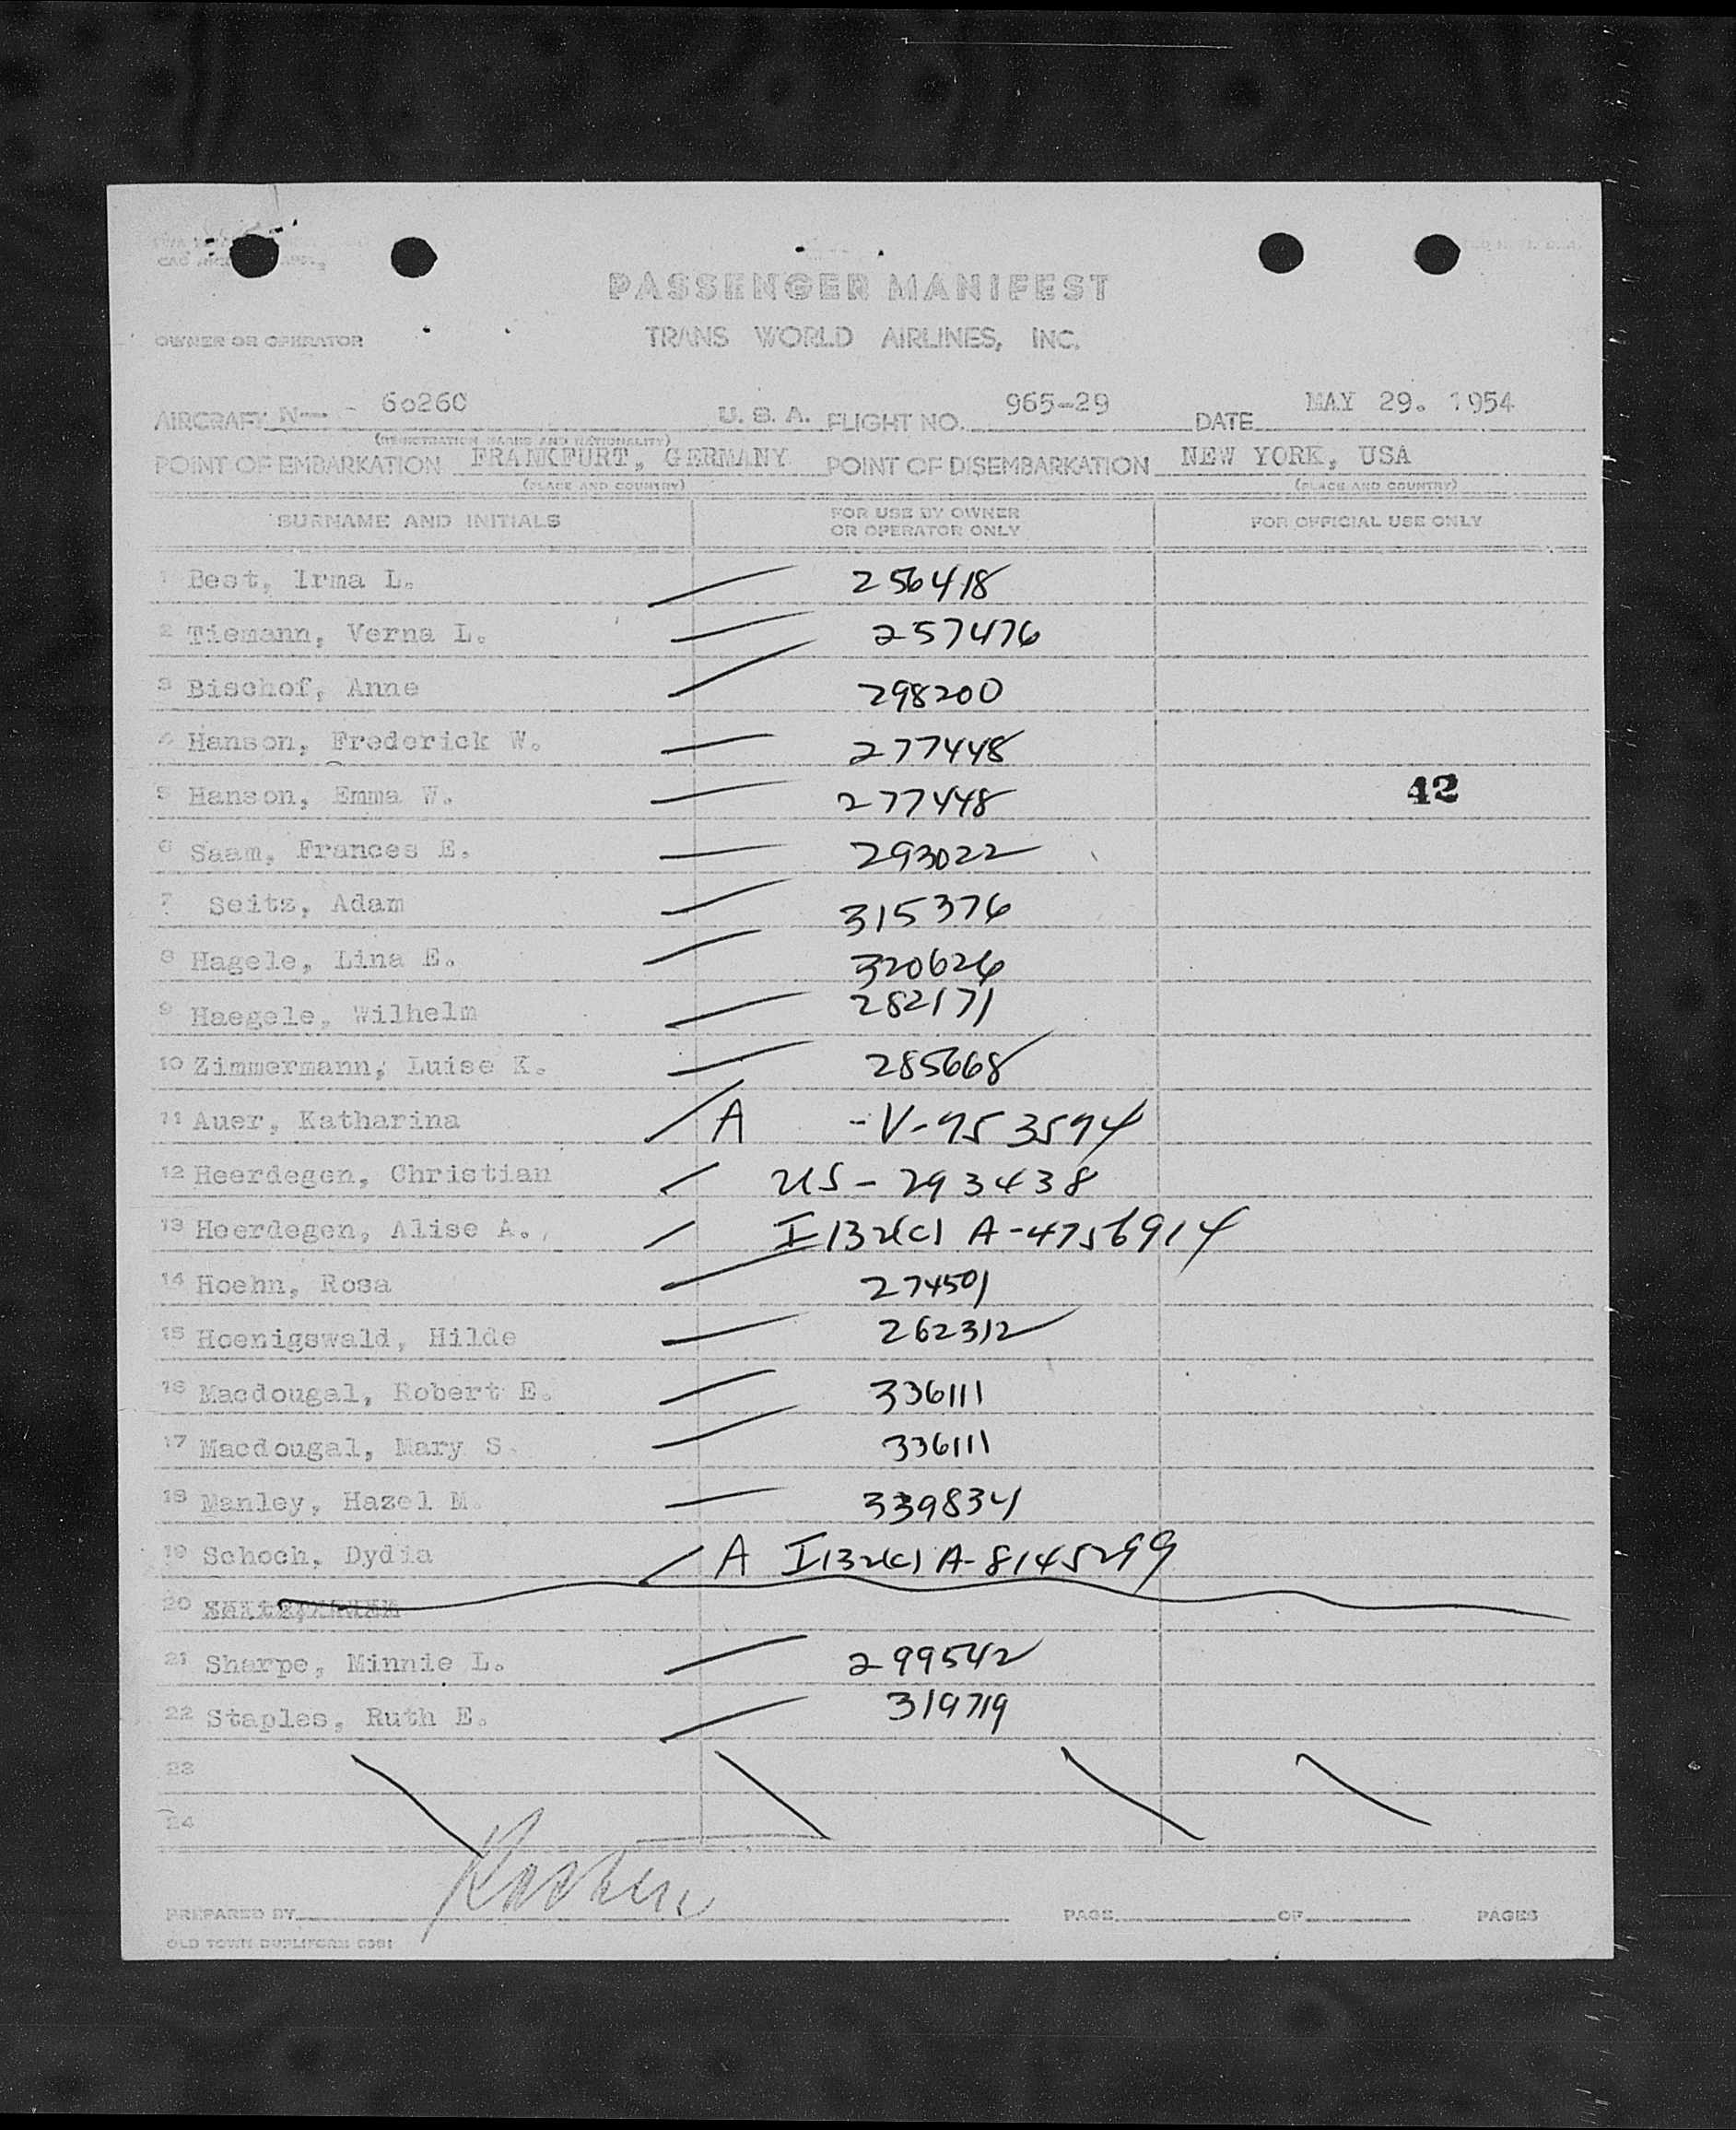 PASSENGER MANIFEST
OWNER OR OPERATOR TRANS WORLD AIRLINES, INC.
AIRCRAFT N 6026C U. S. A. FLIGHT NO. 965-29 DATE MAY 29. 1954
(REGISTRATION MARKS AND NATIONALITY)
POINT OF EMBARKATION FRANKFURT, GERMANY POINT OF DISEMBARKATION NEW YORK, USA
(PLACE AND COUNTRY) (PLACE AND COUNTRY)
SURNAME AND INITIALS FOR USE BY OWNER OR OPERATOR ONLY FOR OFFICIAL USE ONLY
1 Best, Irma L. 256418
2 Tiemann, Verna L. 257476
3 Bischof, Anne 298200
4 Hanson, Frederick W. 277448
5 Hanson, Emma W. 277448 42
6 Saam, Frances E. 293022
7 Seitz, Adam 315376
8 Hagele, Lina E. 320626
9 Haegele, Wilhelm 282171
10 Zimmermann, Luise K. 285668
11 Auer, Katharina A -V-953594
12 Heerdegen, Christian US-293438
13 Heerdegen, Alise A. I132(c) A-4756914
14 Hoehn, Rosa 274501
15 Hoenigswald, Hilde 262312
16 Macdougal, Robert E. 336111
17 Macdougal, Mary S. 336111
18 Manley, Hazel M. 339834
19 Schoch, Dydia A I132(c) A-8145299
20
21 Sharpe, Minnie L. 299542
22 Staples, Ruth E. 319719
23
24
PREPARED BY PAGE OF PAGES
OLD TOWN DUPLIFORM